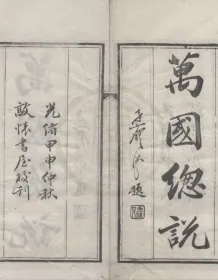 萬國總說
光緒甲申仲秋
敔懷書屋校刊